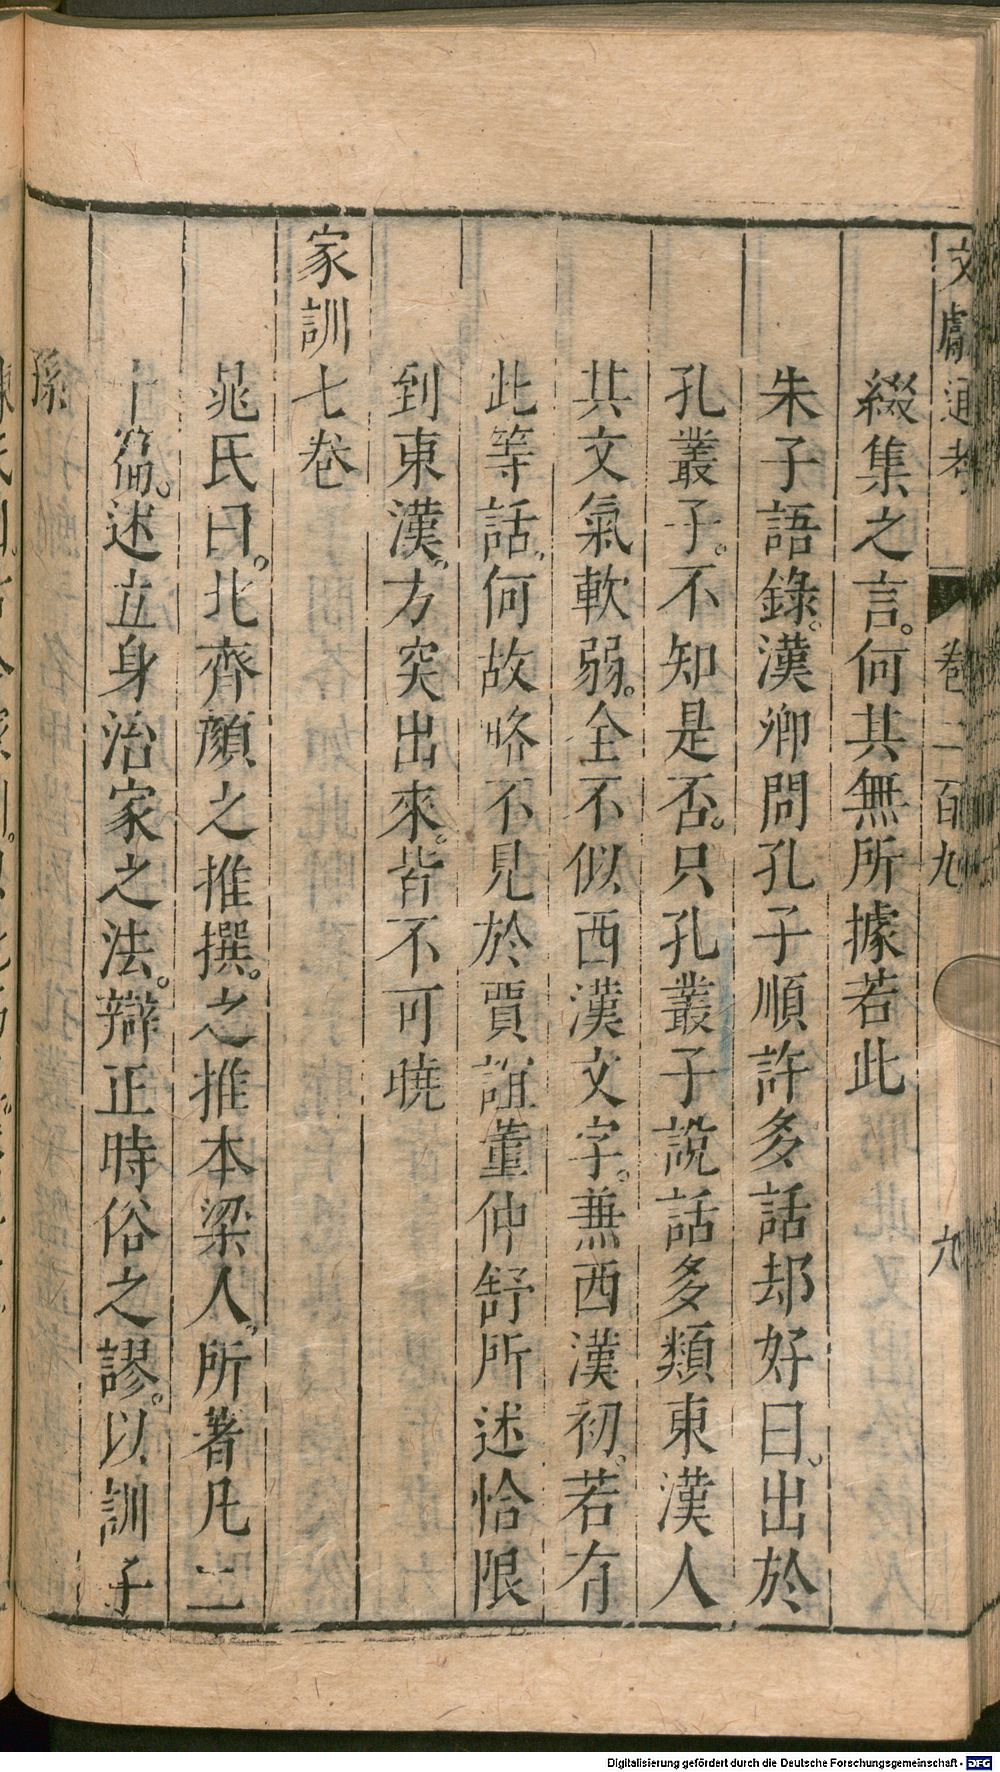 文獻通考 卷二百九 九
綴集之言。何其無所據若此
朱子語錄。漢卿問孔子順許多話却好曰。出於
孔叢子。不知是否。只孔叢子說話多類東漢人
其文氣軟弱。全不似西漢文字。兼西漢初。若有
此等話。何故略不見於賈誼董仲舒所述恰限
到東漢。方突出來。皆不可曉
家訓七卷
晁氏曰。北齊顏之推撰。之推本梁人。所著凡二
十篇。述立身治家之法。辯正時俗之謬。以訓子
孫
Digitalisierung gefördert durch die Deutsche Forschungsgemeinschaft - DFG